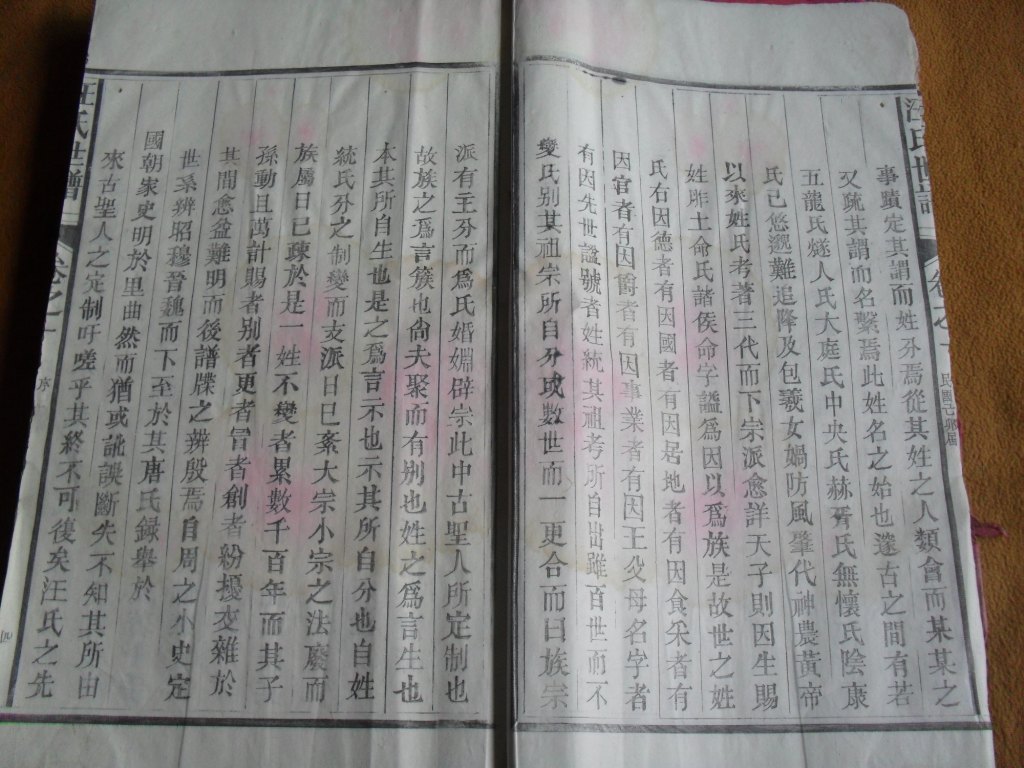 汪氏世譜
事蹟定其謂而姓分焉從其姓之人類會而某某之
又疏其謂而名繫焉此姓名之始也邃古之間有若
五龍氏燧人氏大庭氏中央氏赫胥氏無懷氏陰康
氏已悠邈難追降及包羲女媧防風肇代神農黃帝
以來姓氏考著三代而下宗派愈詳天子則因生賜
姓胙土命氏諸侯命字謚爲因以爲族是故世之姓
氏右因德者有因國者有因居地者有因食采者有
因官者有因爵者有因事業者有因王父母名字者
有因先世謚號者姓統其祖考所自出雖百世而不
變氏别其祖宗所自分或數世而一更合而曰族宗
派有主分而爲氏婚婣辟宗此中古聖人所定制也
故族之爲言簇也尙夫聚而有别也姓之爲言生也
本其所自生也是之爲言示也示其所自分也自姓
統氏分之制變而支派日巳紊大宗小宗之法廢而
族屬日巳疎於是一姓不變者累數千百年而其子
孫動且萬計賜者别者更者冒者創者紛擾交雜於
其間愈益難明而後譜牒之辨殷焉自周之小史定
世系辨昭穆晉魏而下至於其唐氏録舉於
國朝家史明於里曲然而猶或訛誤斷失不知其所由
來古聖人之定制吁嗟乎其終不可復矣汪氏之先
汪氏世譜
四